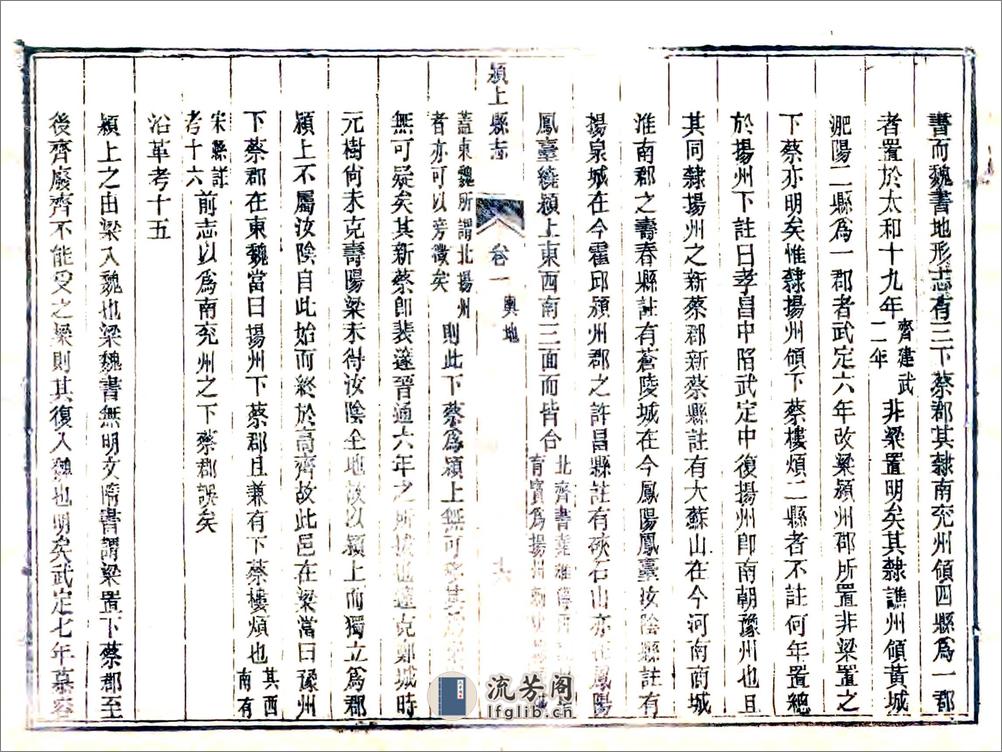 書而魏書地形志有三下蔡郡其隸南兖州領四縣爲一郡
者置於太和十九年齊建武二年非梁置明矣其隸譙州領黃城
淝陽二縣爲一郡者武定六年改梁潁州郡所置非梁置之
下蔡亦明矣惟隸揚州領下蔡樓煩二縣者不註何年置總
於揚州下註曰孝昌中陷武定中復揚州卽南朝豫州也且
其同隸揚州之新蔡郡新蔡縣註有大蘇山在今河南商城
淮南郡之壽春縣註有蒼陵城在今鳳陽鳳臺汝陰縣註有
揚泉城在今霍邱潁州郡之許昌縣註有硤石山亦在鳳陽
鳳臺繞潁上東西南三面而皆台北齊書
育寶爲揚州
潁上縣志
卷一 輿地
十六
蓋東魏所謂北揚州者亦可以旁徵矣則此下蔡爲潁上無可
無可疑矣其新蔡郎裴邃晉通六年之所拔也邃克鄭城時
元樹尙未克壽陽梁未得汝陰全地故以潁上而獨立爲郡
潁上不屬汝陰自此始而終於高齊故此邑在梁當曰豫州
下蔡郡在東魏當曰揚州下蔡郡且兼有下蔡樓煩也其西南有
宋縣註考十六前志以爲南兖州之下蔡郡誤矣
沿革考十五
潁上之由梁入魏也梁魏書無明文隋書謂梁置下蔡郡至
後齊廢齊不能受之梁則其復入魏也明矣武定七年慕容
流芳阁
lfglib.cn